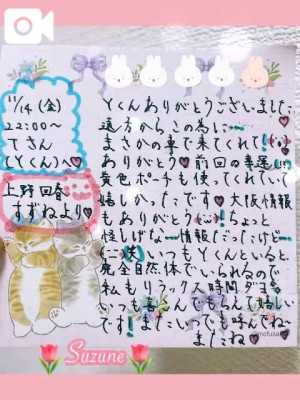 11/14(金)
22:00〜
Tさん
(Yくん)へ♡
上野回春
すずねより♡
Yくんありがとうございました
遠方からこの為に…
まさかの車で来てくれて!
ありがとう♡前回の幸運の
黄色ポーチも使ってくれていて
嬉しかったです♡大阪情報
もありがとう!ちょっと
怪しげな…情報だったけど…
笑 いつもYくんといると
完全自然体でいられるので
私もリラックス時間ダヨ
いつも喜んでもらえて嬉しい
です!またいつでも呼んでね〜
またね♡
Suzune